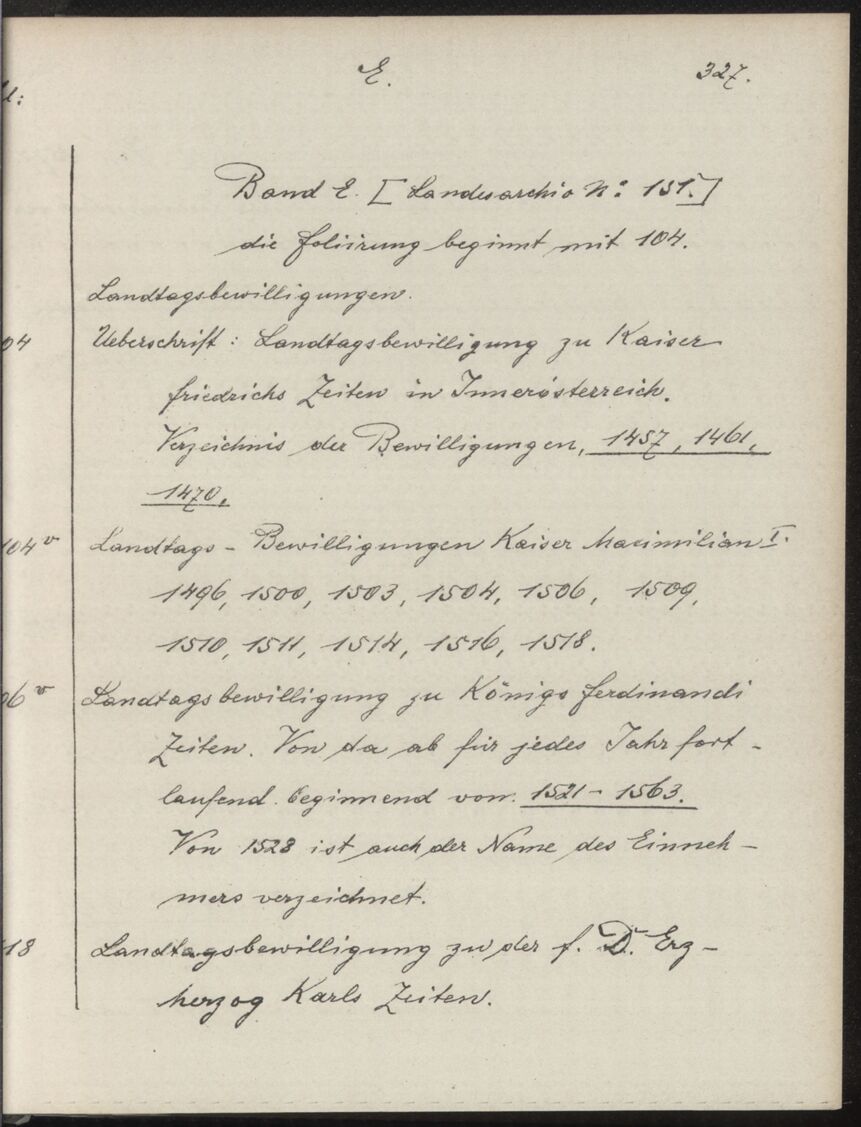 E. 327.
l:
Band E. [Landesarchiv N: 151.]
die Foliirung beginnt mit 104.
Landtagsbewilligungen.
04 Ueberschrift: Landtagsbewilligung zu Kaiser
Friedrichs Zeiten in Innerösterreich.
Verzeichnis der Bewilligungen, 1457, 1461,
1470,
104v Landtags - Bewilligungen Kaiser Maximilian I.
1496, 1500, 1503, 1504, 1506, 1509,
1510, 1511, 1514, 1516, 1518.
06v Landtagsbewilligung zu Königs Ferdinandi
Zeiten. Von da ab für jedes Jahr fort-
laufend. beginnend von. 1521 - 1563.
Von 1528 ist auch der Name des Einneh-
mers verzeichnet.
18 Landtagsbewilligung zu der f. D. Erz-
herzog Karls Zeiten.